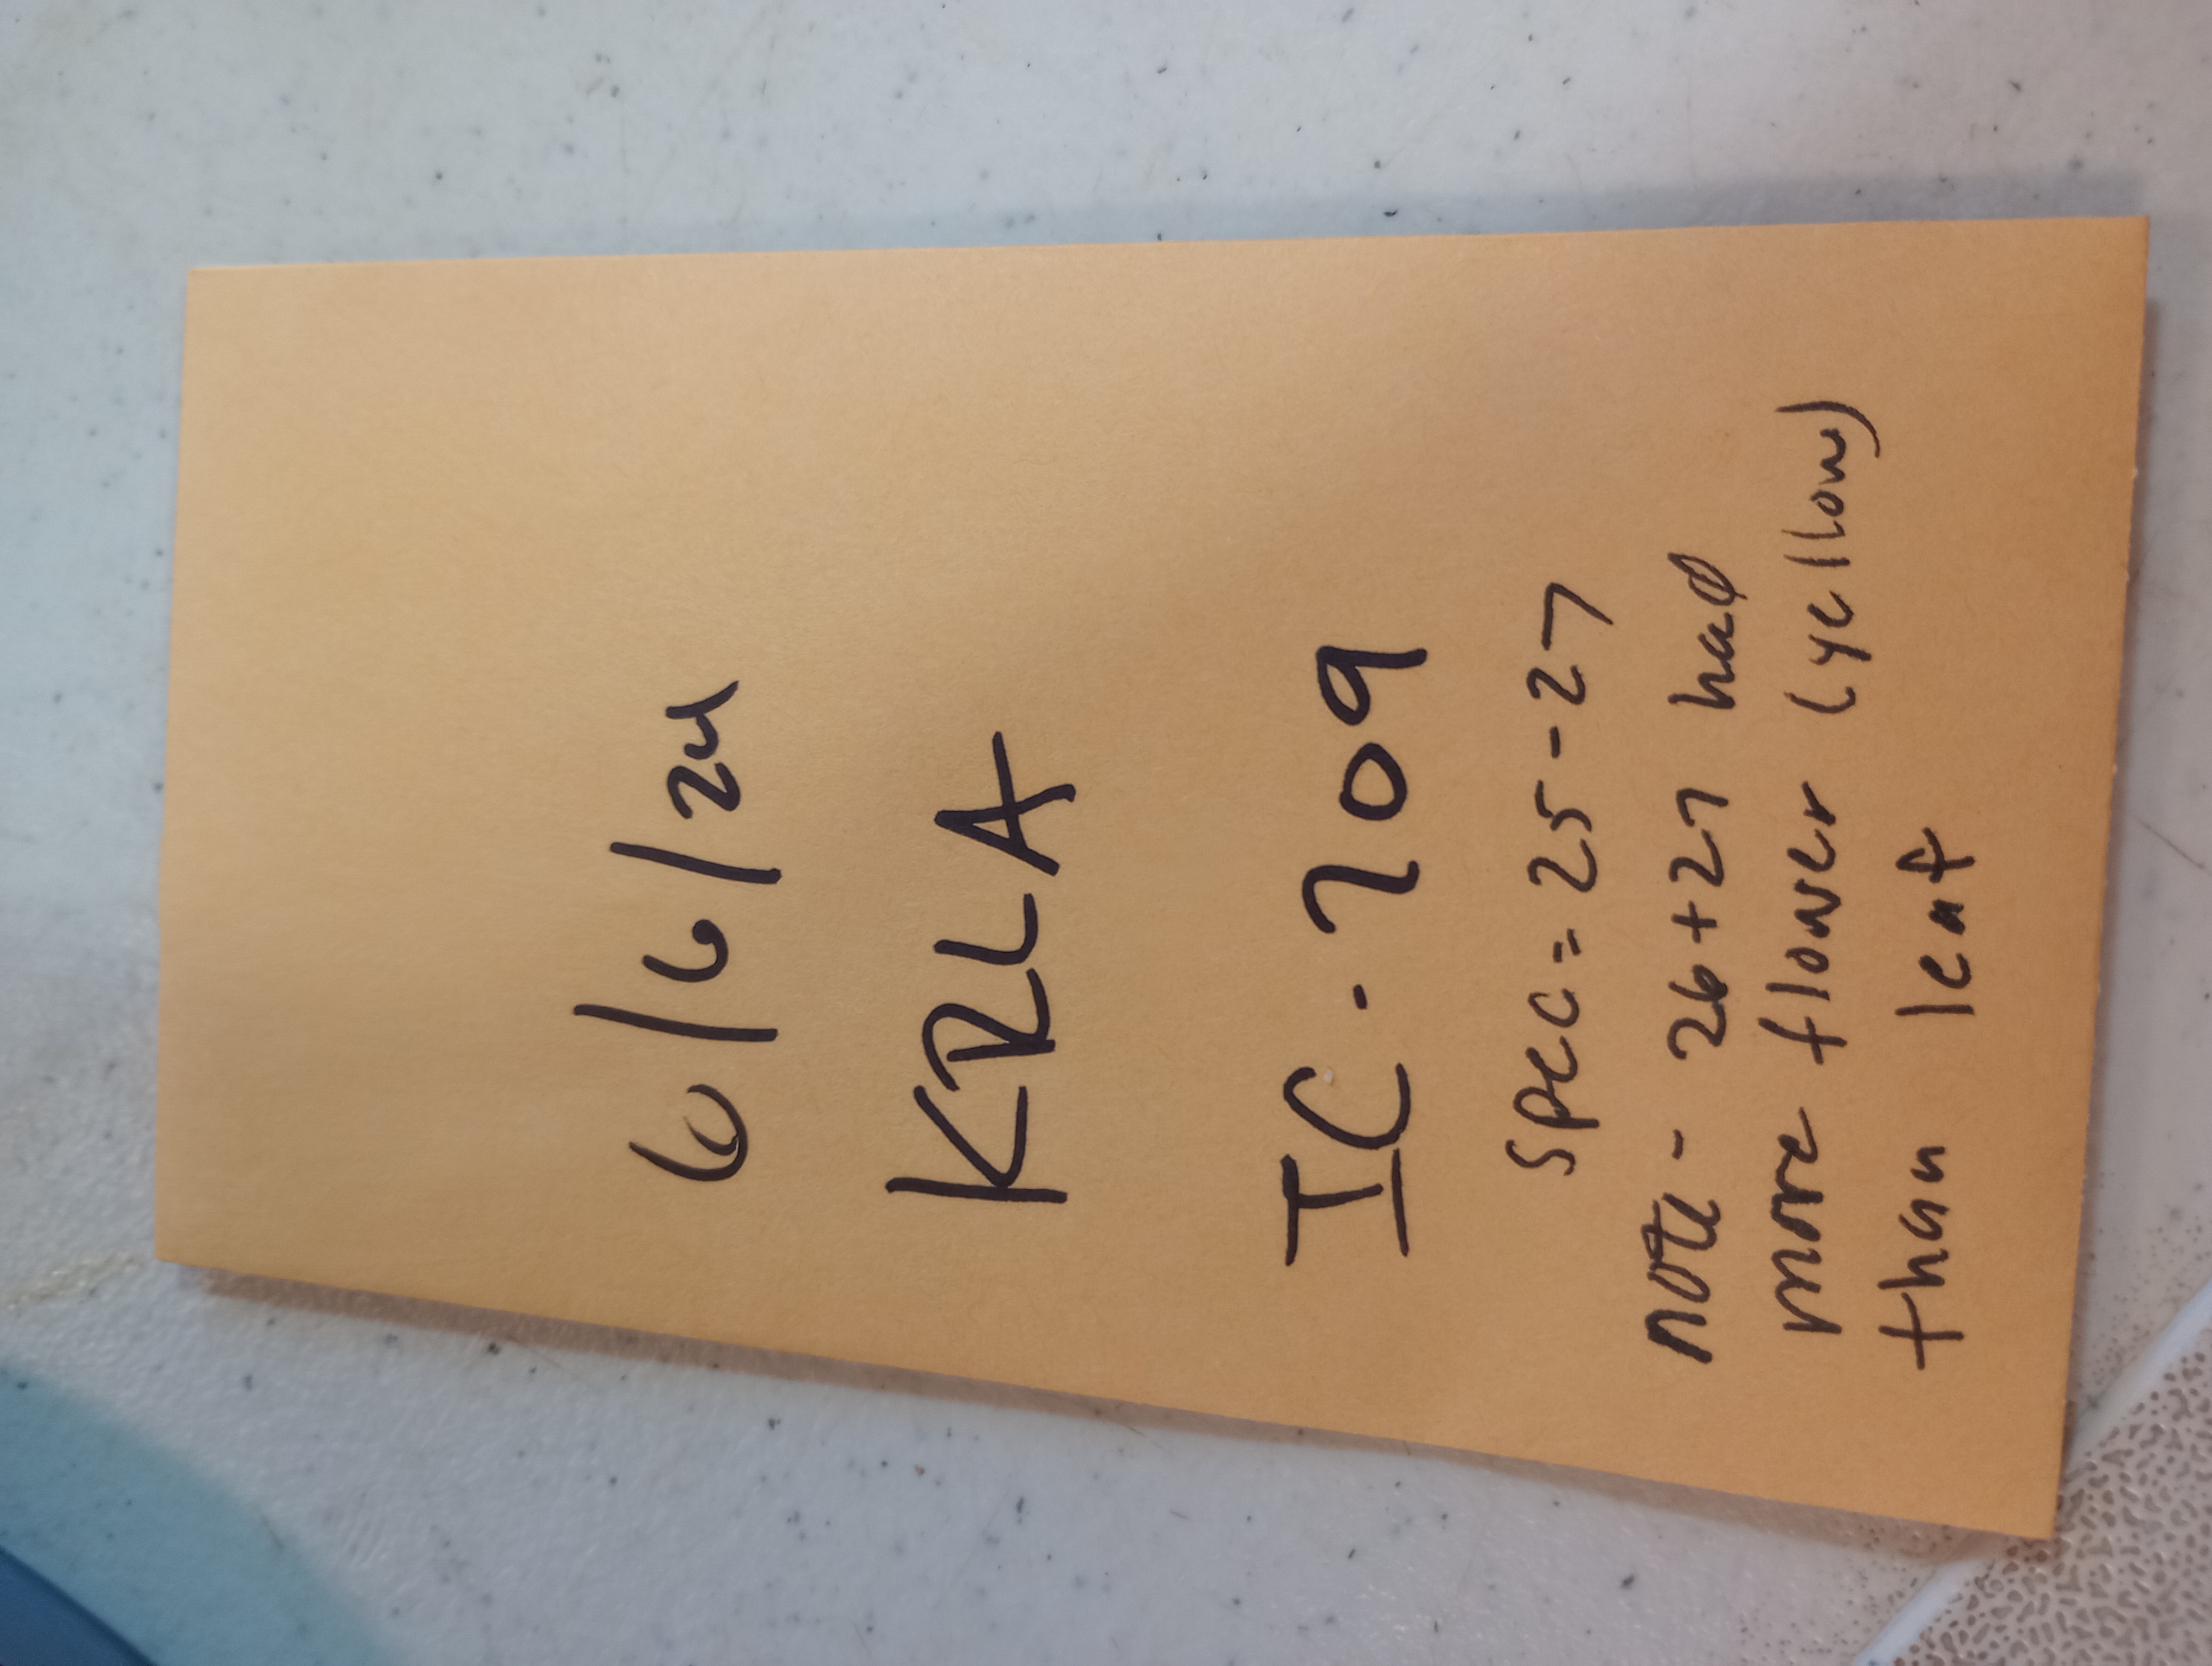 6/6/24
KRLA
IC-709
spec = 25-27
note - 26+27 had
more flower (yellow)
than leaf